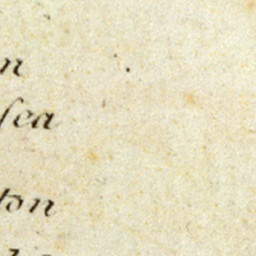 n
ſea
ton